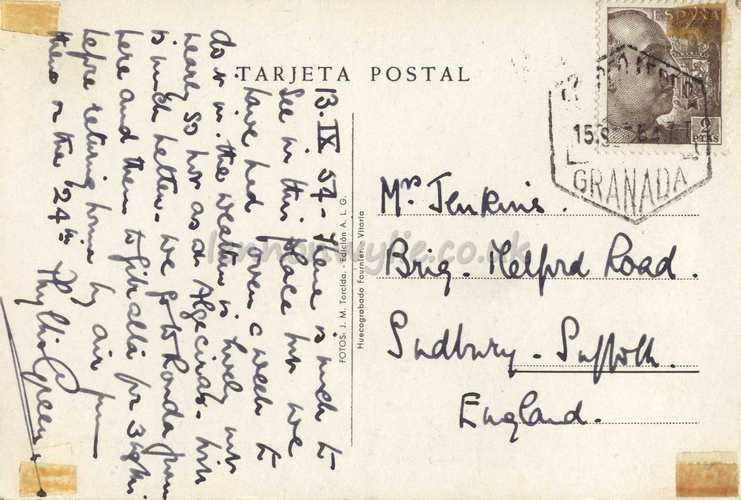 TARJETA POSTAL
13. IX 54 - There is much to
see in this place but we
have had over a week to
do it in. the weather is lovely not
nearly so hot as at Algeciras - which
is much better. We go to Ronda from
here and then to Gibraltar for 3 nights
before returning home by air from
there on the 24th Phyllis Green
FOTOS: J. M. Torcida. - Edición A. L. G.
Huecograbado Fournier. - Vitoria
ESPAÑA
2
PTAS
GRANADA
Mrs Jenkins.
Brig. Melford Road.
Sudbury - Suffolk.
England.
lennonwylie.co.uk